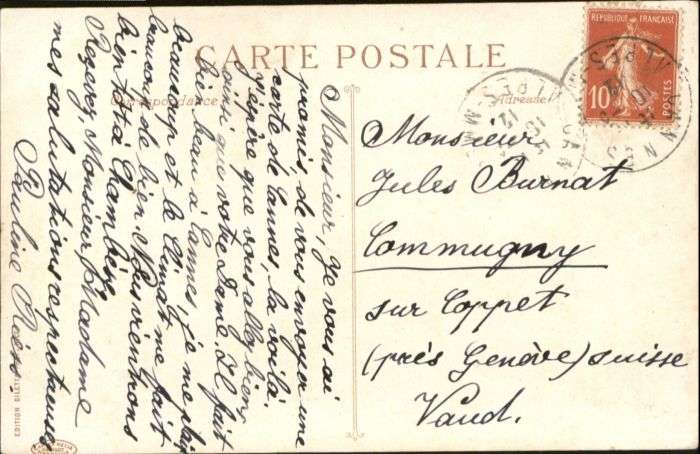 CARTE POSTALE
Correspondance
Adresse
Monsieur, Je vous ai
promis, de vous envoyer une
carte de Cannes, la voilà.
J'espère que vous allez bien
ainsi que votre Dame. Il fait
bien beau à Cannes, je me plais
beaucoup et le Climat me fait
baucoup de bien. Nous viendrons
bientôt à Chambésy.
Recevez, Monsieur, Madame
mes salutations respectueuses
Pauline
Monsieur
Jules Burnat
Commugny
sur Coppet
(près Genève) Suisse
Vaud.
REPUBLIQUE FRANÇAISE
10
POSTES
EDITION GILETTA